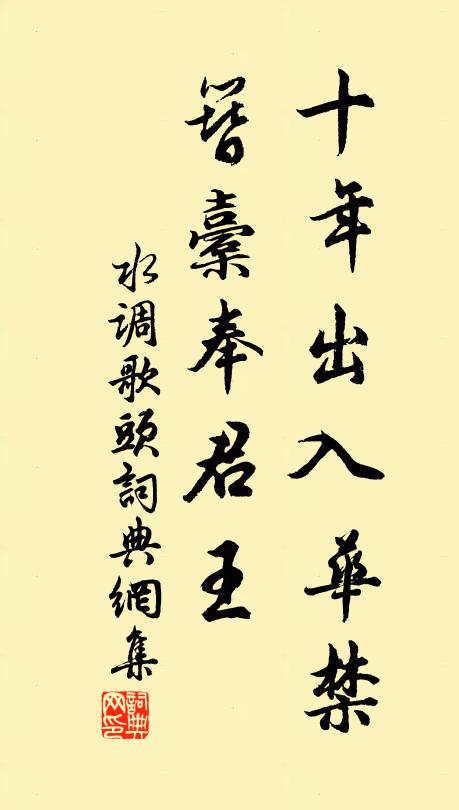 十年出入華禁
簪橐奉君王
水調歌頭詞典網集
詞典网印